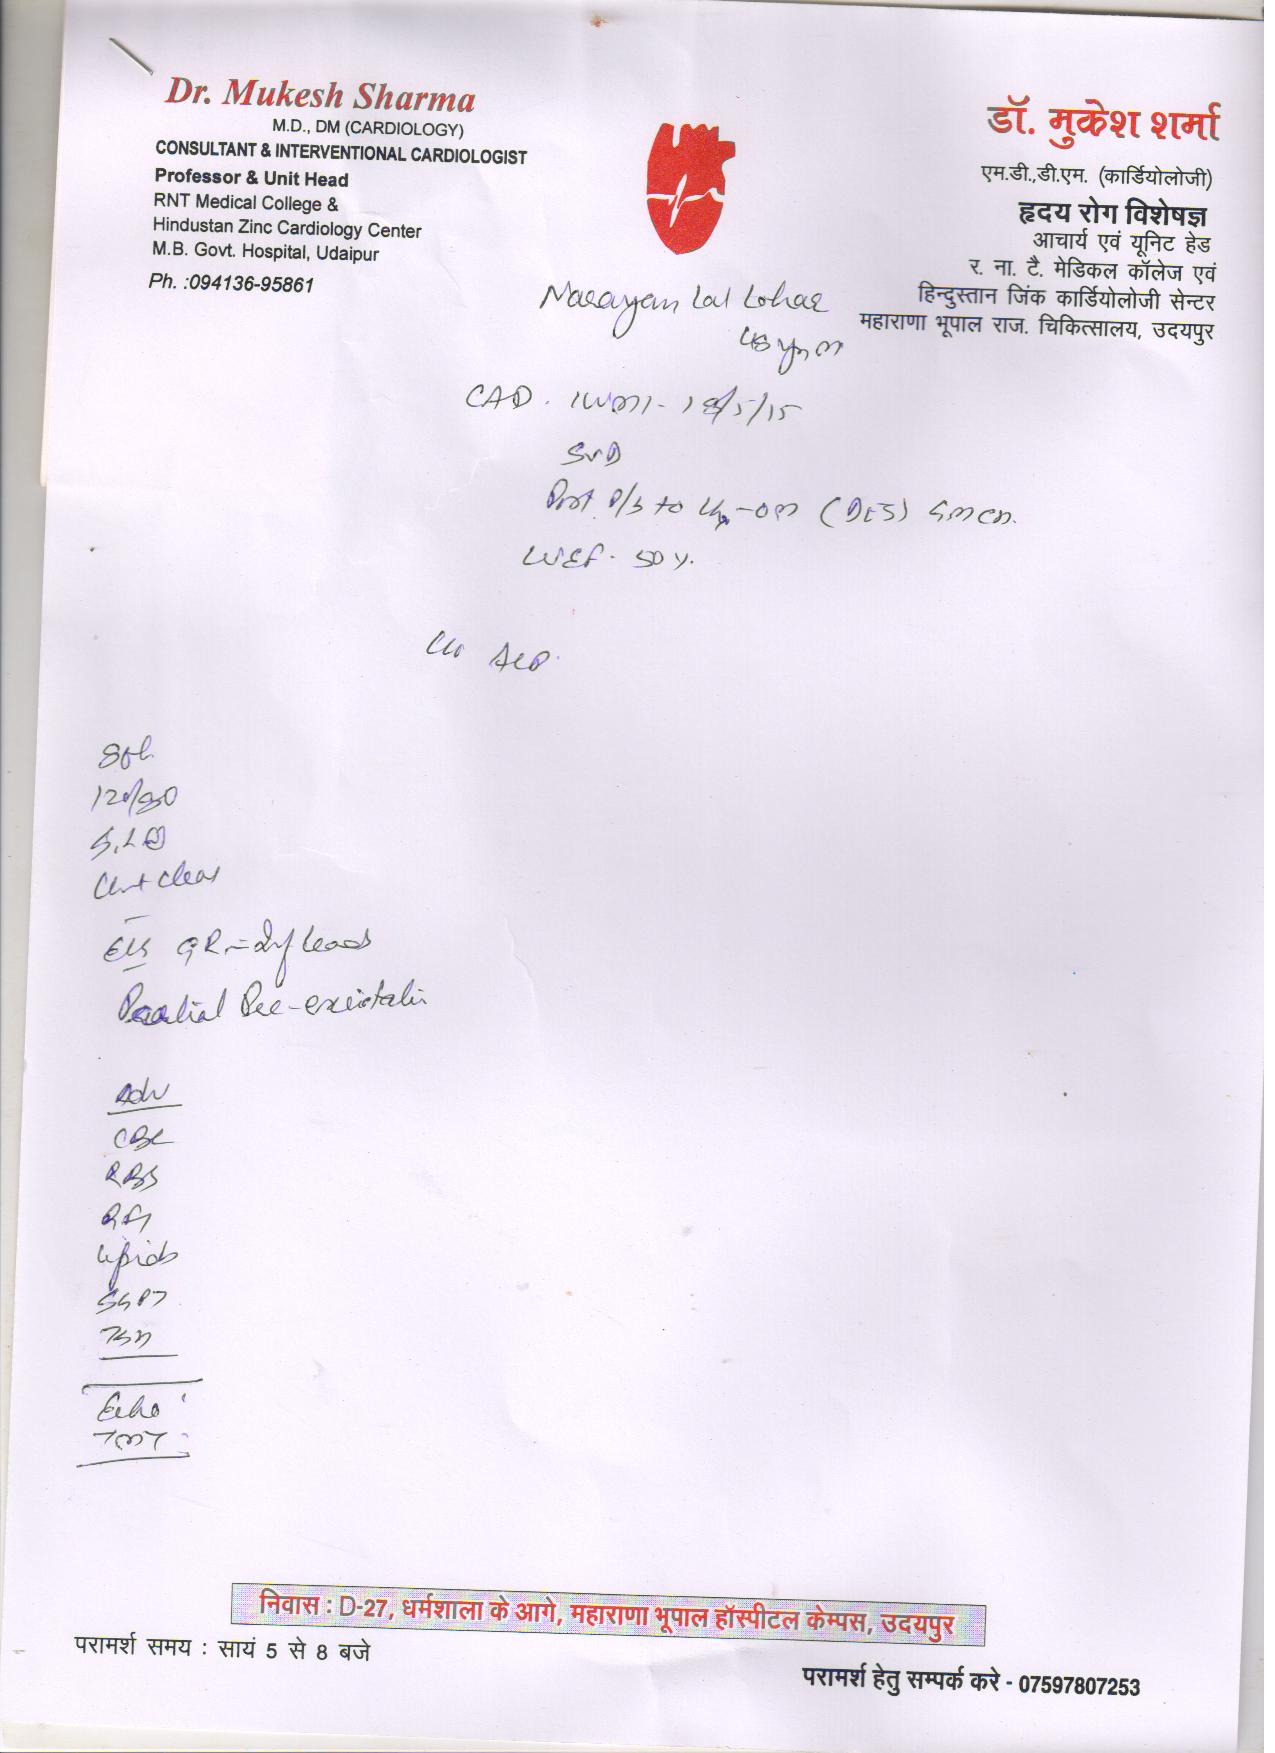 Dr. Mukesh Sharma
M.D., DM (CARDIOLOGY)
CONSULTANT & INTERVENTIONAL CARDIOLOGIST
Professor & Unit Head
RNT Medical College &
Hindustan Zinc Cardiology Center
M.B. Govt. Hospital, Udaipur
Ph. :094136-95861
डॉ. मुकेश शर्मा
एम.डी.,डी.एम. (कार्डियोलोजी)
हृदय रोग विशेषज्ञ
आचार्य एवं यूनिट हेड
र. ना. टै. मेडिकल कॉलेज एवं
हिन्दुस्तान जिंक कार्डियोलोजी सेन्टर
महाराणा भूपाल राज. चिकित्सालय, उदयपुर
Narayan Lal Lohar
CAD. IWMI - 18/5/15
SVD
Post to -OM (DES)
LVEF - 50%.
120/80
Chest clear
leads
Partial
Adv
CBC
RBS
RFT
Lipids
SGPT
TSH
Echo
TMT
निवास : D-27, धर्मशाला के आगे, महाराणा भूपाल हॉस्पीटल केम्पस, उदयपुर
परामर्श समय : सायं 5 से 8 बजे
परामर्श हेतु सम्पर्क करे - 07597807253